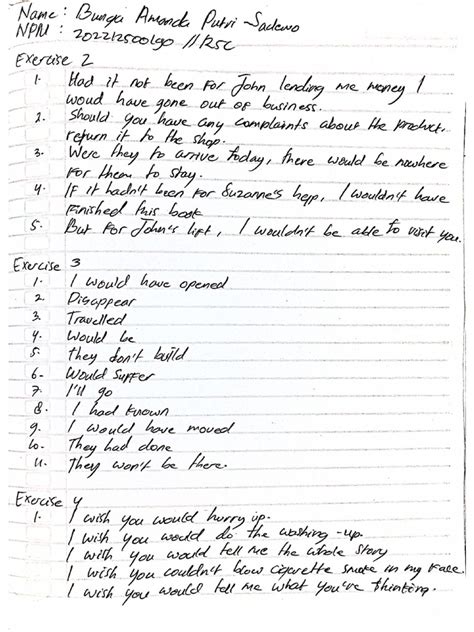 Name : Bunga Amanda Putri Sadewo
NPM : 202212500190 // R5C
Exercise 2
1. Had it not been for John lending me money I
woud have gone out of business.
2. Should you have any complaints about the product,
return it to the shop.
3. Were they to arrive today, there would be nowhere
for them to stay.
4. If it hadn't been for Suzanne's help, I wouldn't have
finished this book
5. But for John's lift, I wouldn't be able to visit you.
Exercise 3
1. I would have opened
2. Disappear
3. Travelled
4. Would be
5. they don't build
6. Would Suffer
7. I'll go
8. I had known
9. I would have moved
10. They had done
11. They won't be there.
Exercise 4
1. I wish you would hurry up.
I wish you would do the washing-up.
I wish you would tell me the whole story
I wish you couldn't blow cigarette smoke in my face.
I wish you would tell me what you've thinking.